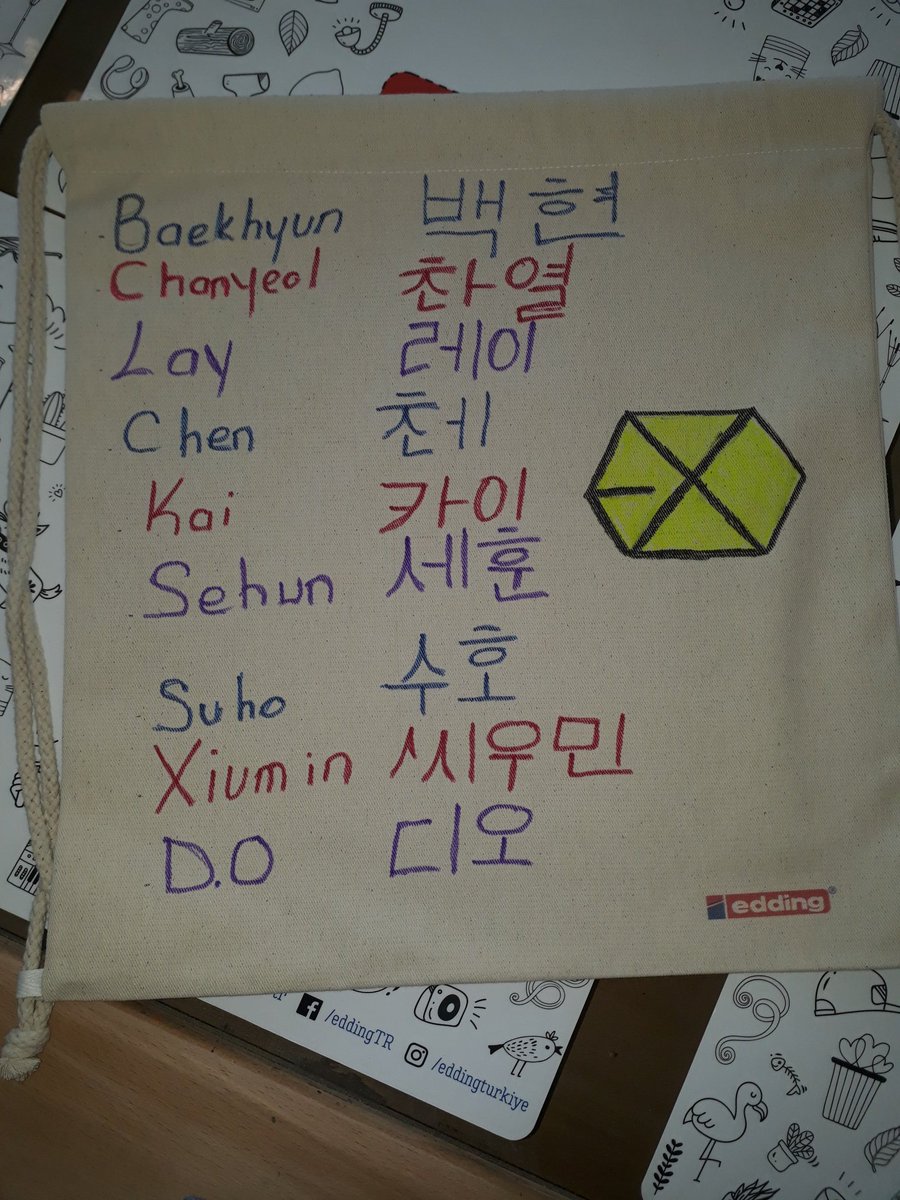 Baekhyun 백현
Chanyeol 차열
Lay 레이
Chen 체
Kai 카이
Sehun 세훈
Suho 수호
Xiumin 씨우민
D.O 디오
edding®
/eddingTR
/eddingturkiye